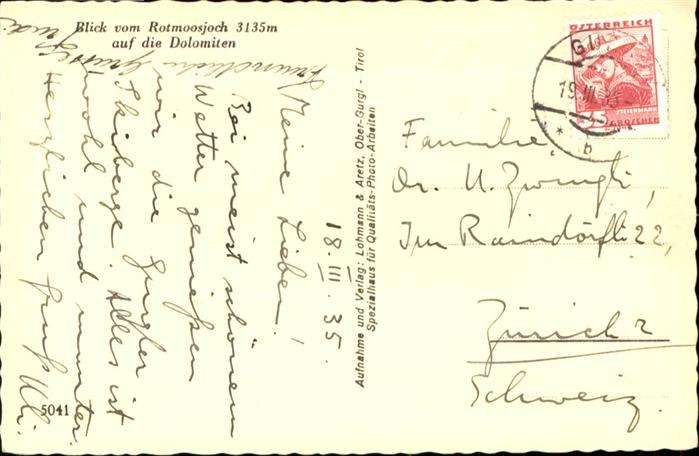 Blick vom Rotmoosjoch 3135m
auf die Dolomiten
18. III. 35.
Meine Lieben!
Bei meist schönem
Wetter genießen
wir die Gurgler
Skiberge. Alles ist
wohl und munter.
Herzlichen Gruß Uli.
5041
Aufnahme und Verlag: Lohmann & Aretz, Ober-Gurgl - Tirol
Spezialhaus für Qualitäts-Photo-Arbeiten
ÖSTERREICH
GROSCHEN
19.III.35
b
Familie
Dr. U. Zwingli,
Im Raindörfli 22,
Zürich 2
Schweiz.